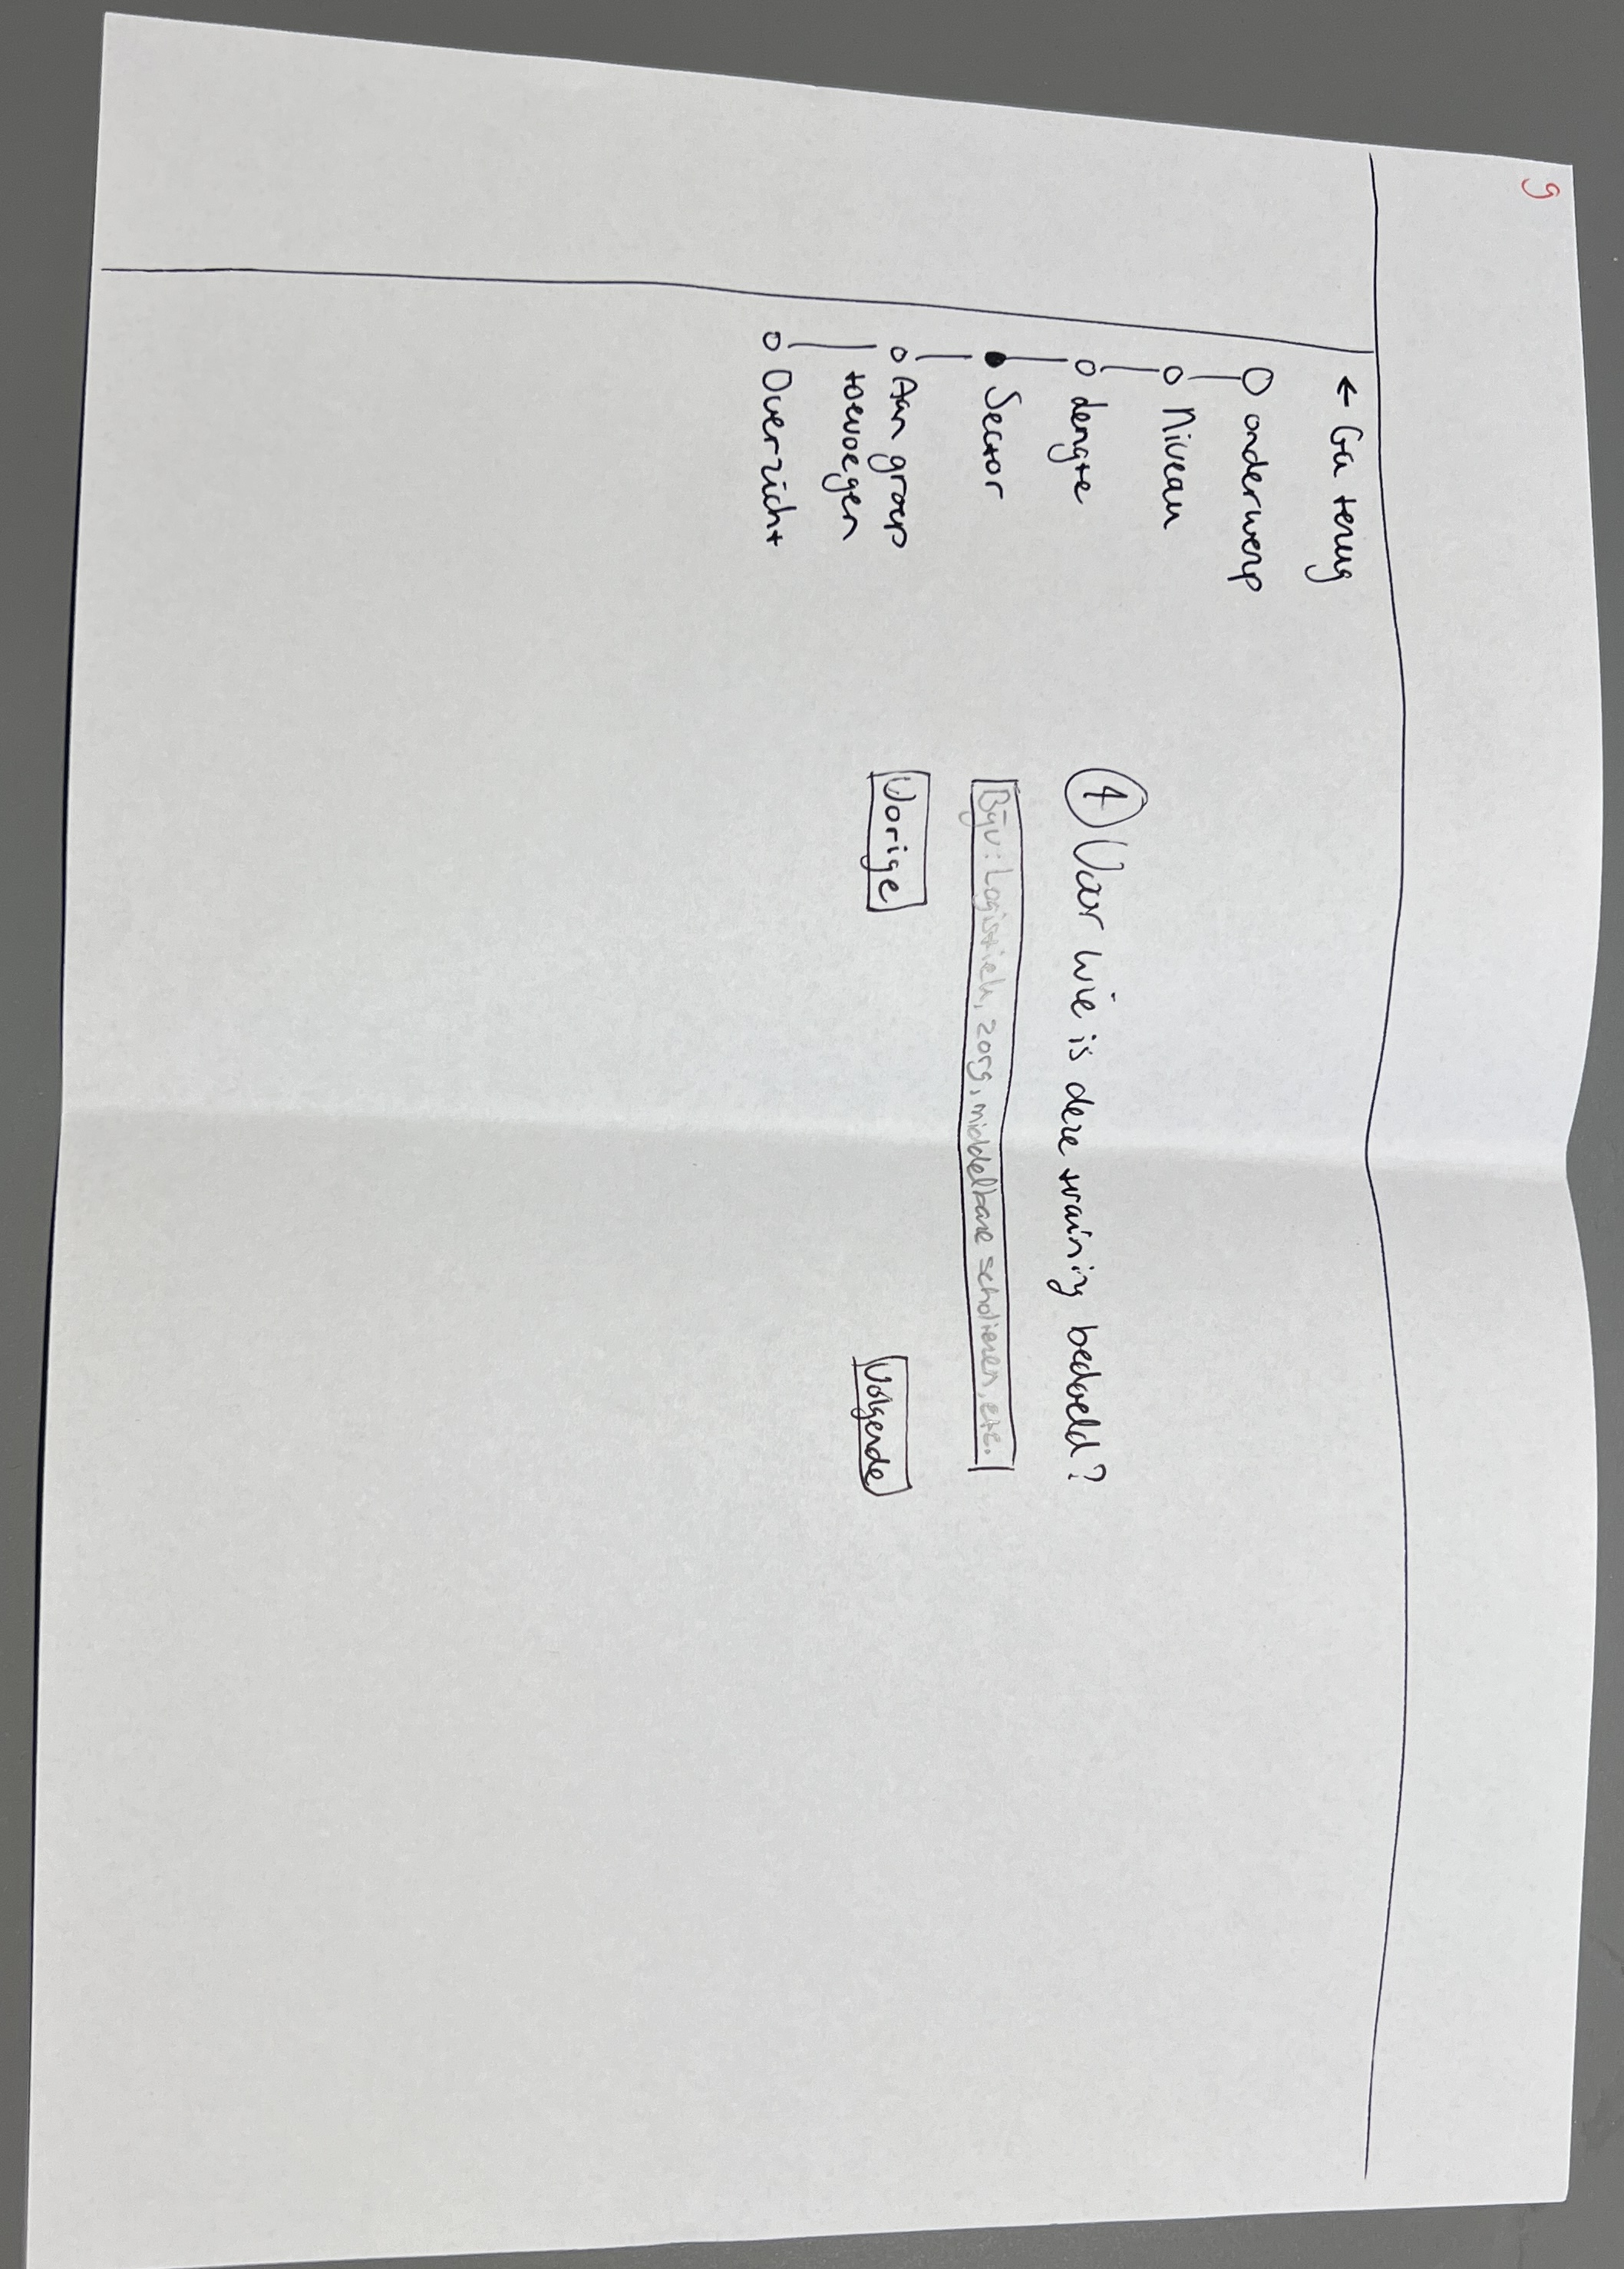 9
← Ga terug
onderwerp
Niveau
Lengte
Sector
Aan groep
toevoegen
Overzicht
4 Voor wie is deze training bedoeld?
Bijv: Logistiek, zorg, middelbare scholieren, etc.
Vorige
Volgende